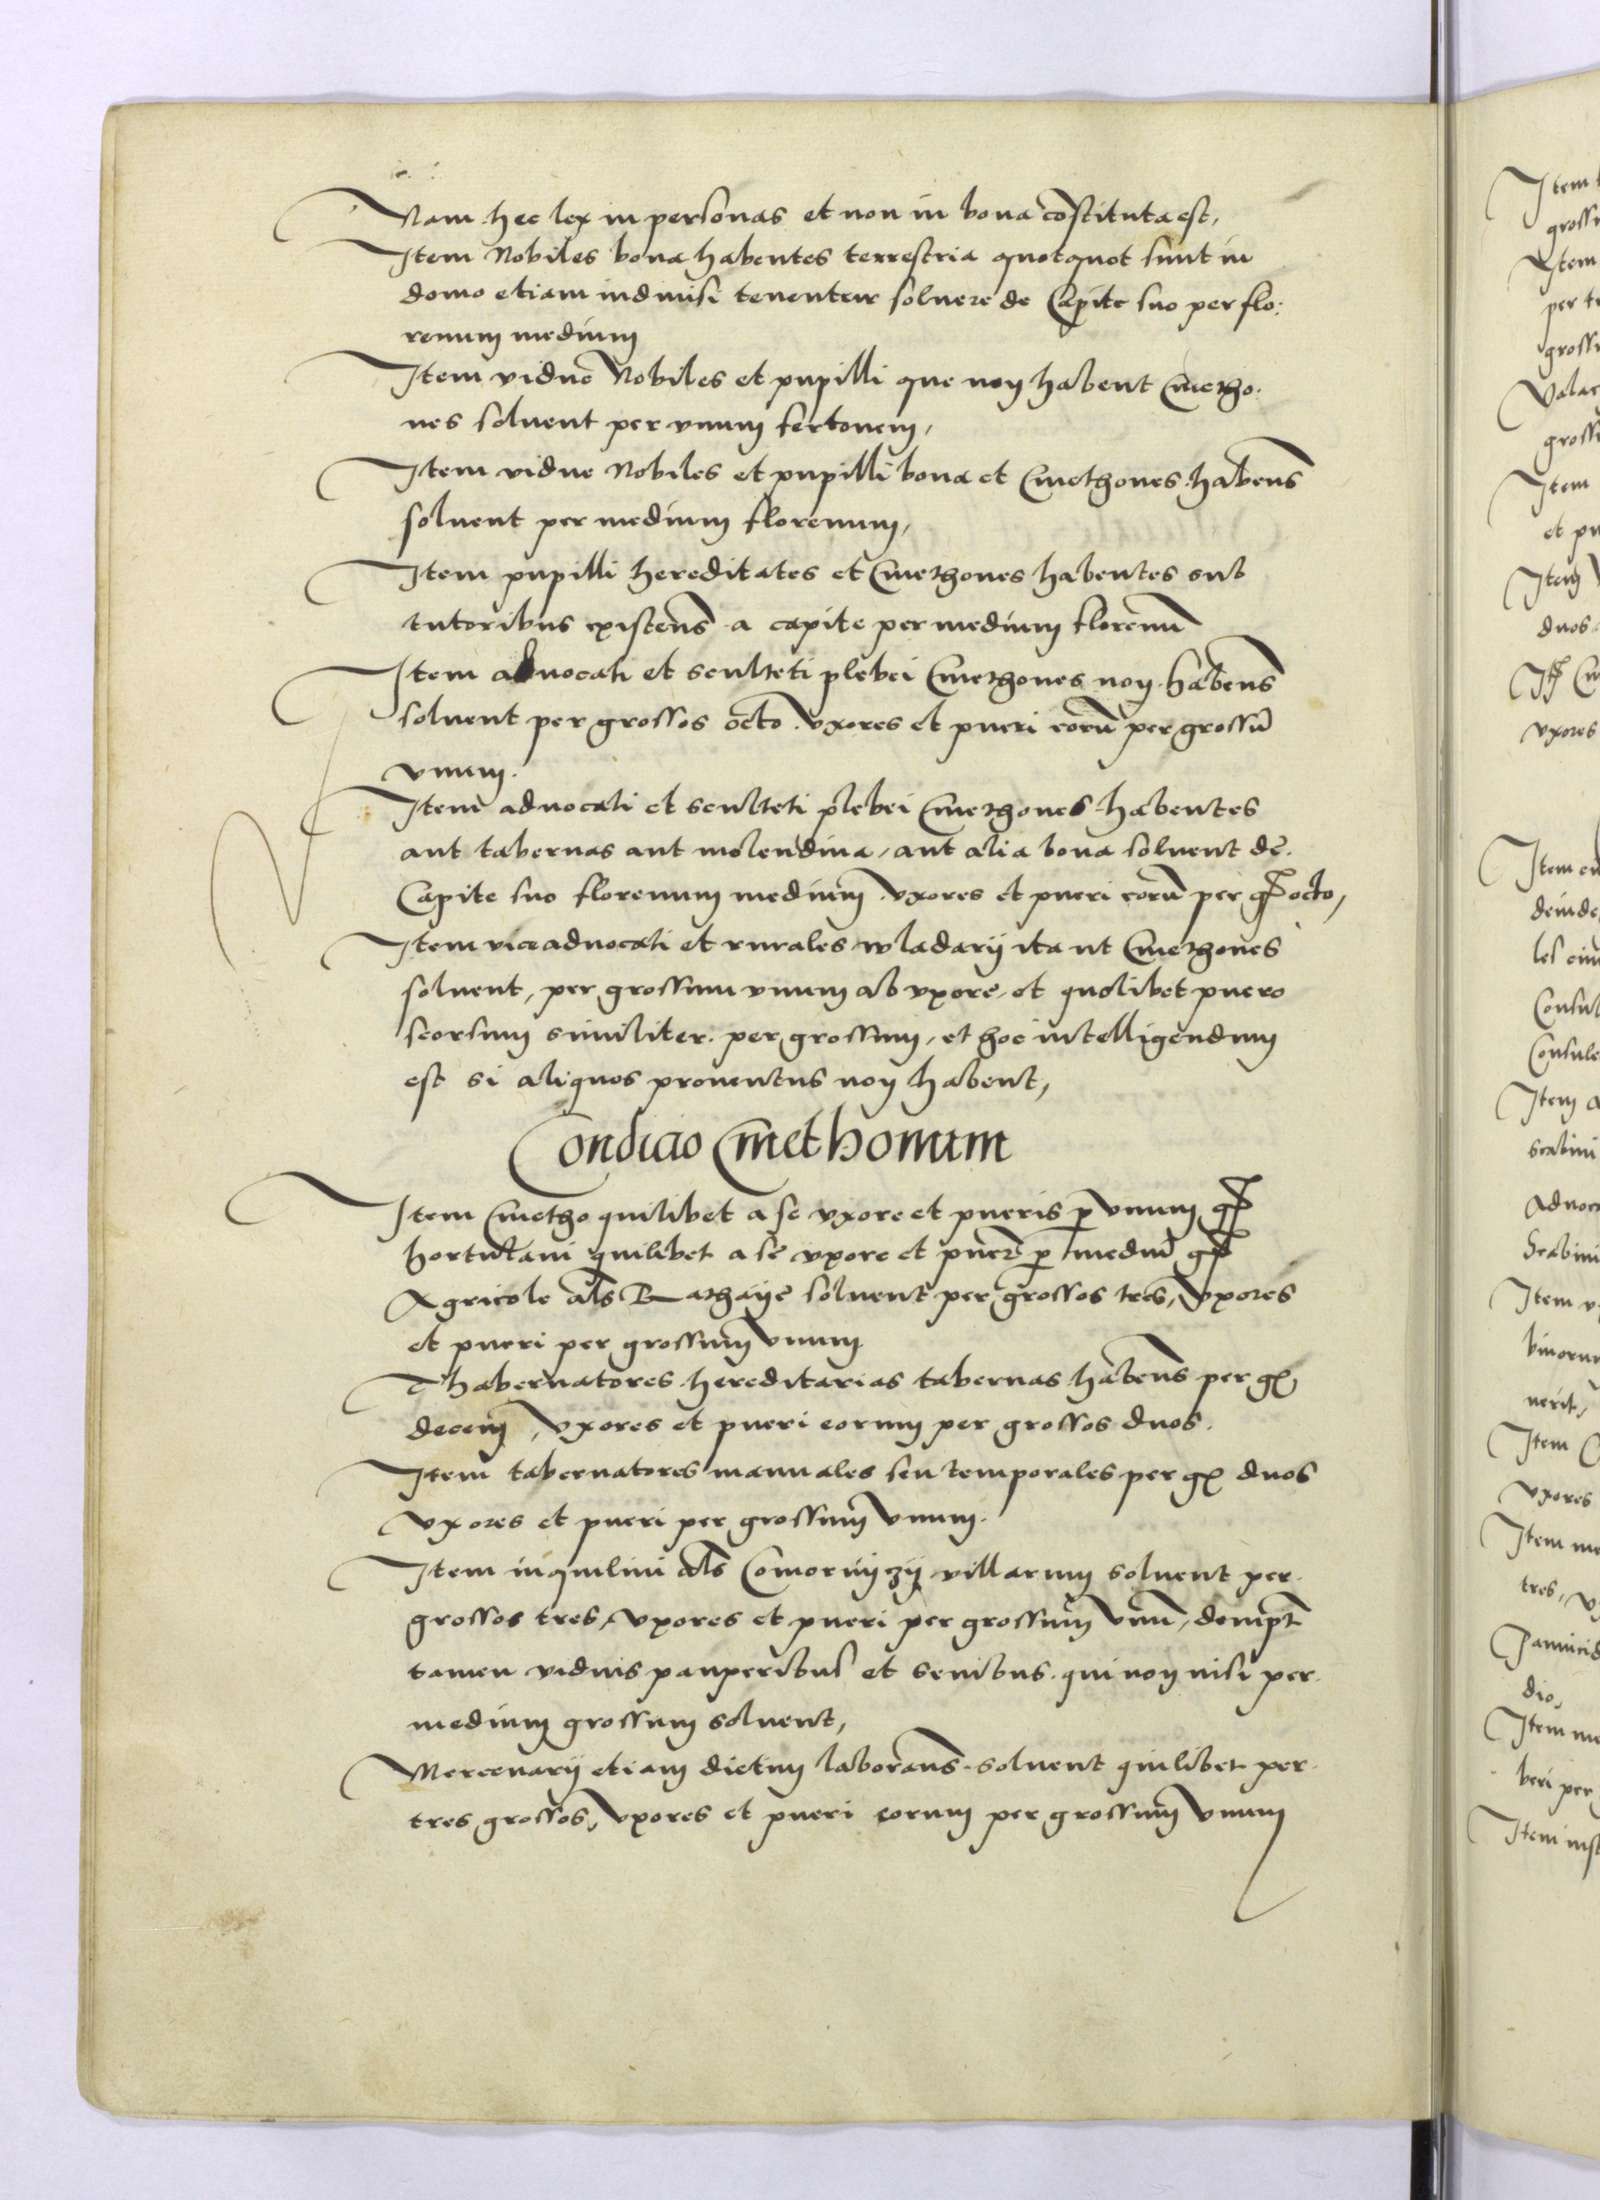 Nam hec lex in personas et non in bona cōstituta est,
Item Nobiles bona habentes terrestria quotquot sunt in
domo etiam indiuisi tenentur soluere de Capite suo per flo:
renum medium
Item vidue Nobiles et pupilli que non habent Cmetho.
nes soluent per vnum fertonem,
Item vidue Nobiles et pupilli bona et Cmethones habens
soluent per medium florenum,
Item pupilli hereditates et Cmethones habentes sub
tutoribus existens a capite per medium florenū
Item aduocati et sculteti plebei Cmethones non habens
soluent per grossos octo. vxores et pueri eorū per grossū
vnum.
Item aduocati et sculteti plebei Cmethones habentes
aut tabernas aut molendina, aut alia bona soluent de.
Capite suo florenum medium. vxores et pueri eorū per gr octo,
Item viceaduocati et rurales wladarij ita ut Cmethones
soluent, per grossum vnum ab vxore, et quolibet puero
seorsum similiter. per grossum, et hoc intelligendum
est si aliquos prouentus non habent,
Condicio Cmethonum
Item Cmetho quilibet a se vxore et pueris p vnum gr
hortulani quilibet a se vxore et puer p mediū gr
Agricole als Rathaije soluent per grossos tres, vxores
et pueri per grossum vnum
Thabernatores hereditarias tabernas habens per gr
decem, vxores et pueri eorum per grossos duos.
Item tabernatores manuales seu temporales per gr duos
vxores et pueri per grossum vnum.
Item inquilini als Comornijzij villarum soluent per.
grossos tres, vxores et pueri per grossum vnū, dempt
tamen viduis pauperibus et senibus. qui non nisi per.
medium grossum soluent,
Mercenarij etiam dictim laborans. soluent quilibet per.
tres grossos, vxores et pueri eorum per grossum vnum